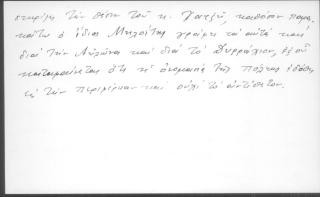 στηρίζη τὴν θέσιν τοῦ κ. Γατζῆ, καθόσον παρα-
κάτω ὁ ἴδιος Μηλιώτης γράφει τὰ αὐτὰ καὶ
διὰ τὴν Αὐλῶνα καὶ διὰ τὸ Δυρράχιον, ἐξ οὗ
καταφαίνεται ὅτι ἡ ὀνομασία τῆς πόλεως ἐδόθη
εἰς τὴν περιφέρειαν καὶ οὐχὶ τὸ ἀντίθετον.